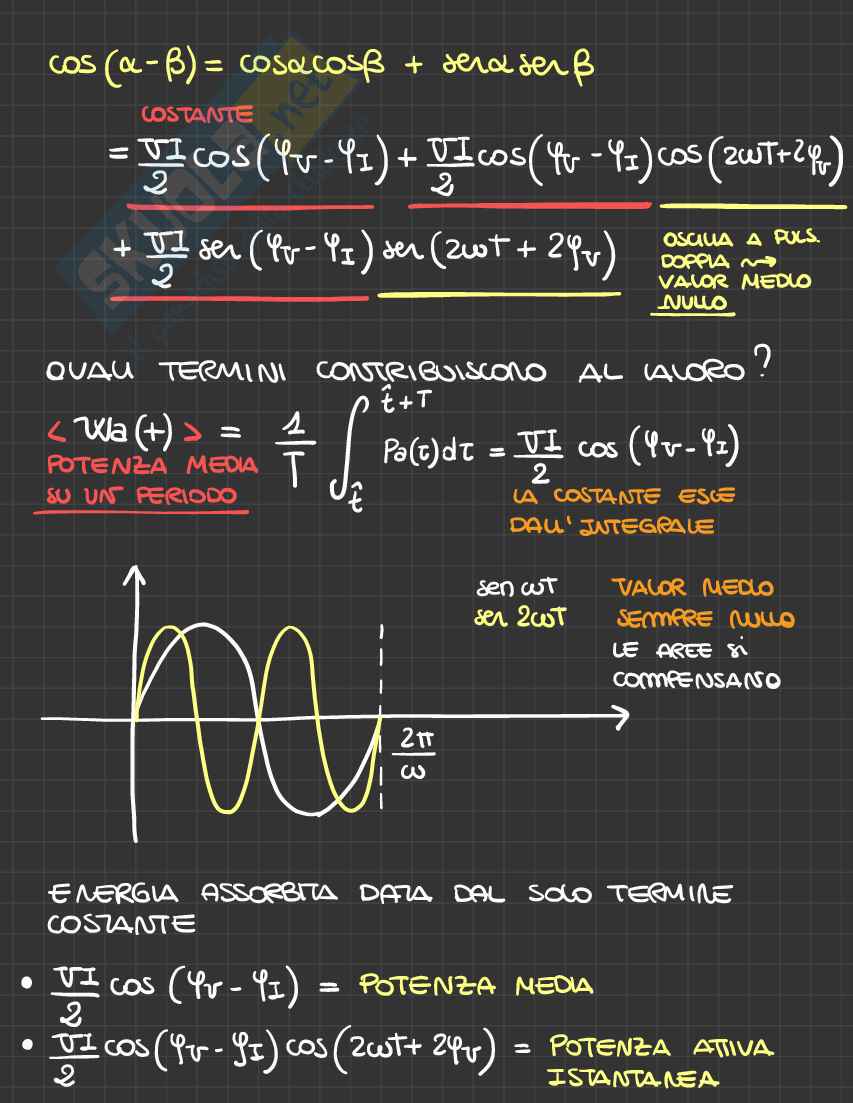 cos(α-β) = cosαcosβ + senαsenβ
COSTANTE
= VI/2 cos(φv-φI) + VI/2 cos(φv-φI) cos(2ωt+2φv)
+ VI/2 sen(φv-φI) sen(2ωt+2φv)
OSCILLA A PULS.
DOPPIA ⇝
VALOR MEDIO
NULLO
QUALI TERMINI CONTRIBUISCONO AL LAVORO?
< Wa(t) > = 1/T ∫ t̂ t̂+T Pa(τ)dτ = VI/2 cos(φv-φI)
POTENZA MEDIA
SU UN PERIODO
LA COSTANTE ESCE
DALL'INTEGRALE
sen ωt
sen 2ωt
VALOR MEDIO
SEMPRE NULLO
LE AREE SI
COMPENSANO
2π/ω
ENERGIA ASSORBITA DATA DAL SOLO TERMINE
COSTANTE
• VI/2 cos(φv-φI) = POTENZA MEDIA
• VI/2 cos(φv-φI) cos(2ωt+2φv) = POTENZA ATTIVA
ISTANTANEA